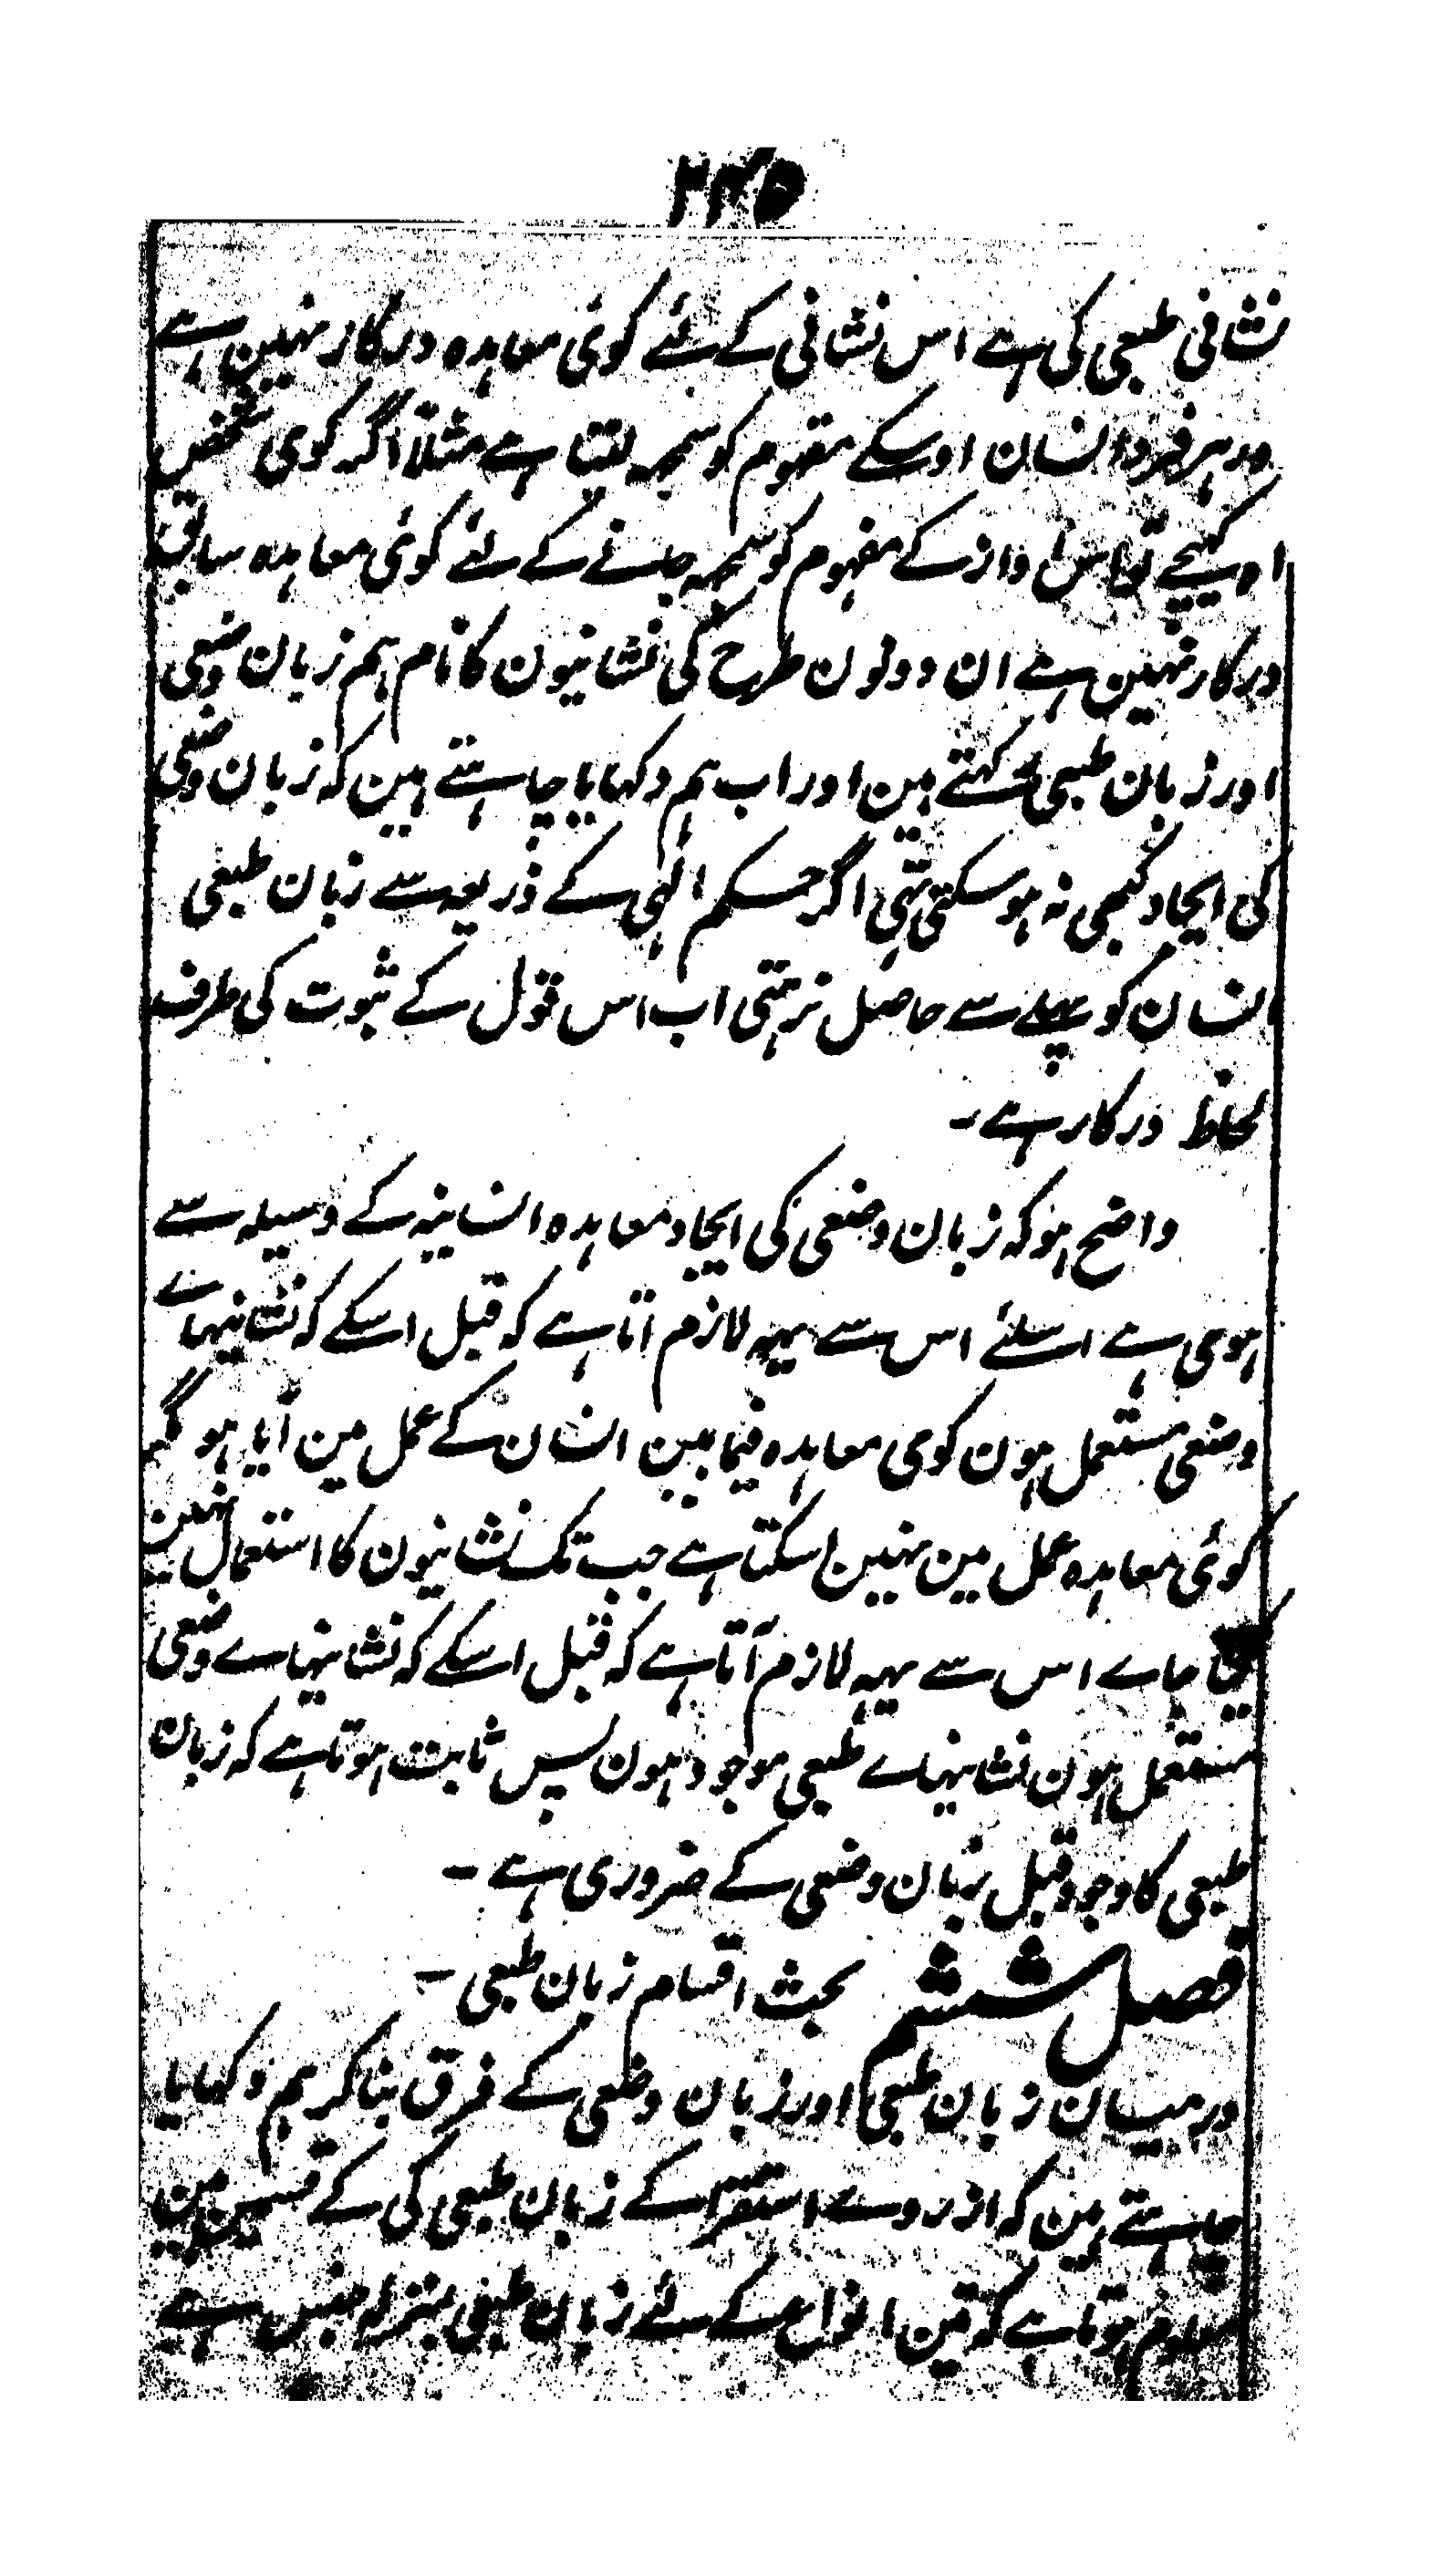 ۲۳۵
نشانی طبعی کی ہے اس نشانی کے لئے کوئی معاہدہ درکار نہین ہے
ہر فرد انسان اوسکے مفہوم کو سمجہ لیتا ہے مثلاً اگر کوی شخص
اوہ کہیچے تو اس اواز کے مفہوم کو سمجہہ جانے کے لئے کوئی معاہدہ سابق
درکار نہین ہے ان دونون طرح کی نشانیون کا نام ہم زبان وضعی
اور زبان طبعی کہتے ہین اور اب ہم دکہایا چاہتے ہین کہ زبان وضعی
کی ایجاد کبھی نہ ہو سکتی تہی اگر حکم الہی کے ذریعہ سے زبان طبعی
انسان کو پہلے سے حاصل نہ ہتی اب اس قول کے ثبوت کی طرف
لحاظ درکار ہے ۔
واضح ہو کہ زبان وضعی کی ایجاد معاہدہ انسانیہ کے وسیلہ سے
ہوی ہے اسلئے اس سے یہہ لازم اتا ہے کہ قبل اسکے کہ نشانیہاے
وضعی مستعمل ہون کوی معاہدہ فیما بین انسان کے عمل مین آیا ہو مگر
کوئی معاہدہ عمل مین نہین اسکتا ہے جب تک نشانیون کا استعمال نہین
کیا جاے اس سے یہہ لازم آتا ہے کہ قبل اسکے کہ نشانیہاے وضعی
مستعمل ہون نشانیہاے طبعی موجود ہون پس ثابت ہوتا ہے کہ زبان
طبعی کا وجود قبل زبان وضعی کے ضروری ہے ۔
فصل ششم بحث اقسام زبان طبعی ۔
درمیان زبان طبعی اور زبان وضعی کے فرق بتا کر ہم دکہایا
چاہتے ہین کہ از روے استقرا کے زبان طبعی کی کے قسمین ہین
معلوم ہوتا ہے کہ تین انواع کے لئے زبان طبعی بمنزلہ جنس ہے